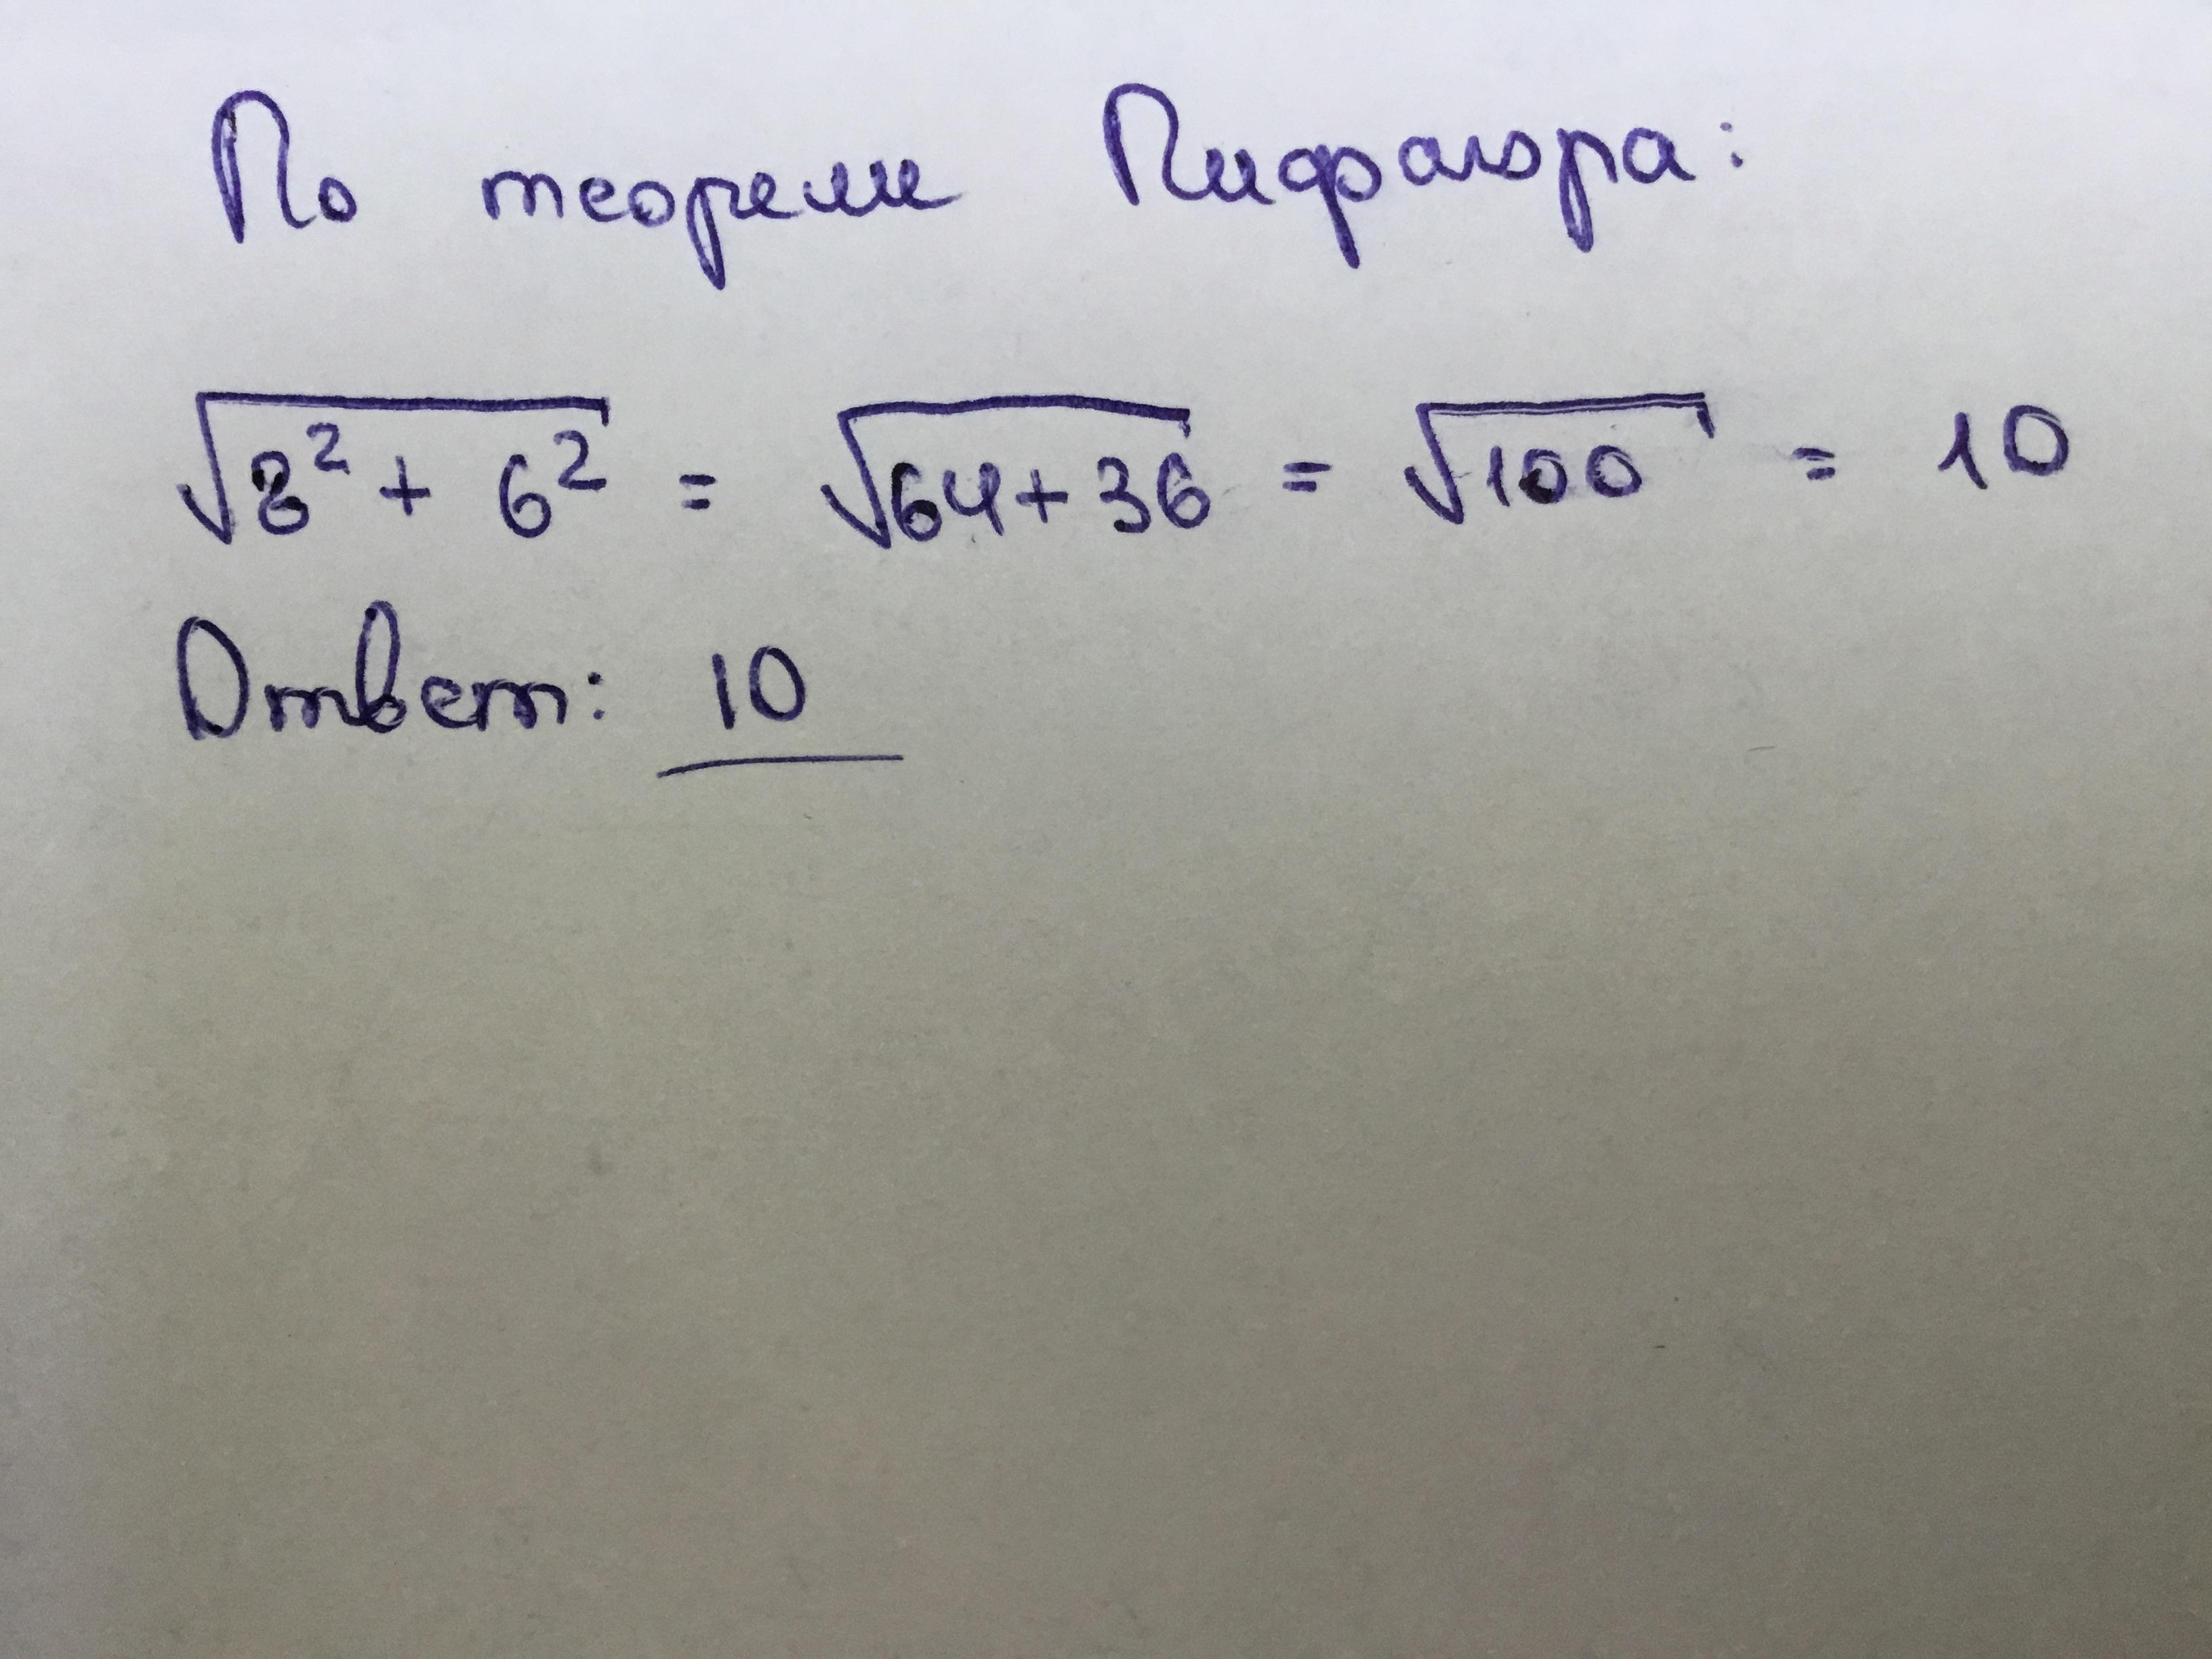 По теореме Пифагора:
√8² + 6² = √64+36 = √100 = 10
Ответ: 10